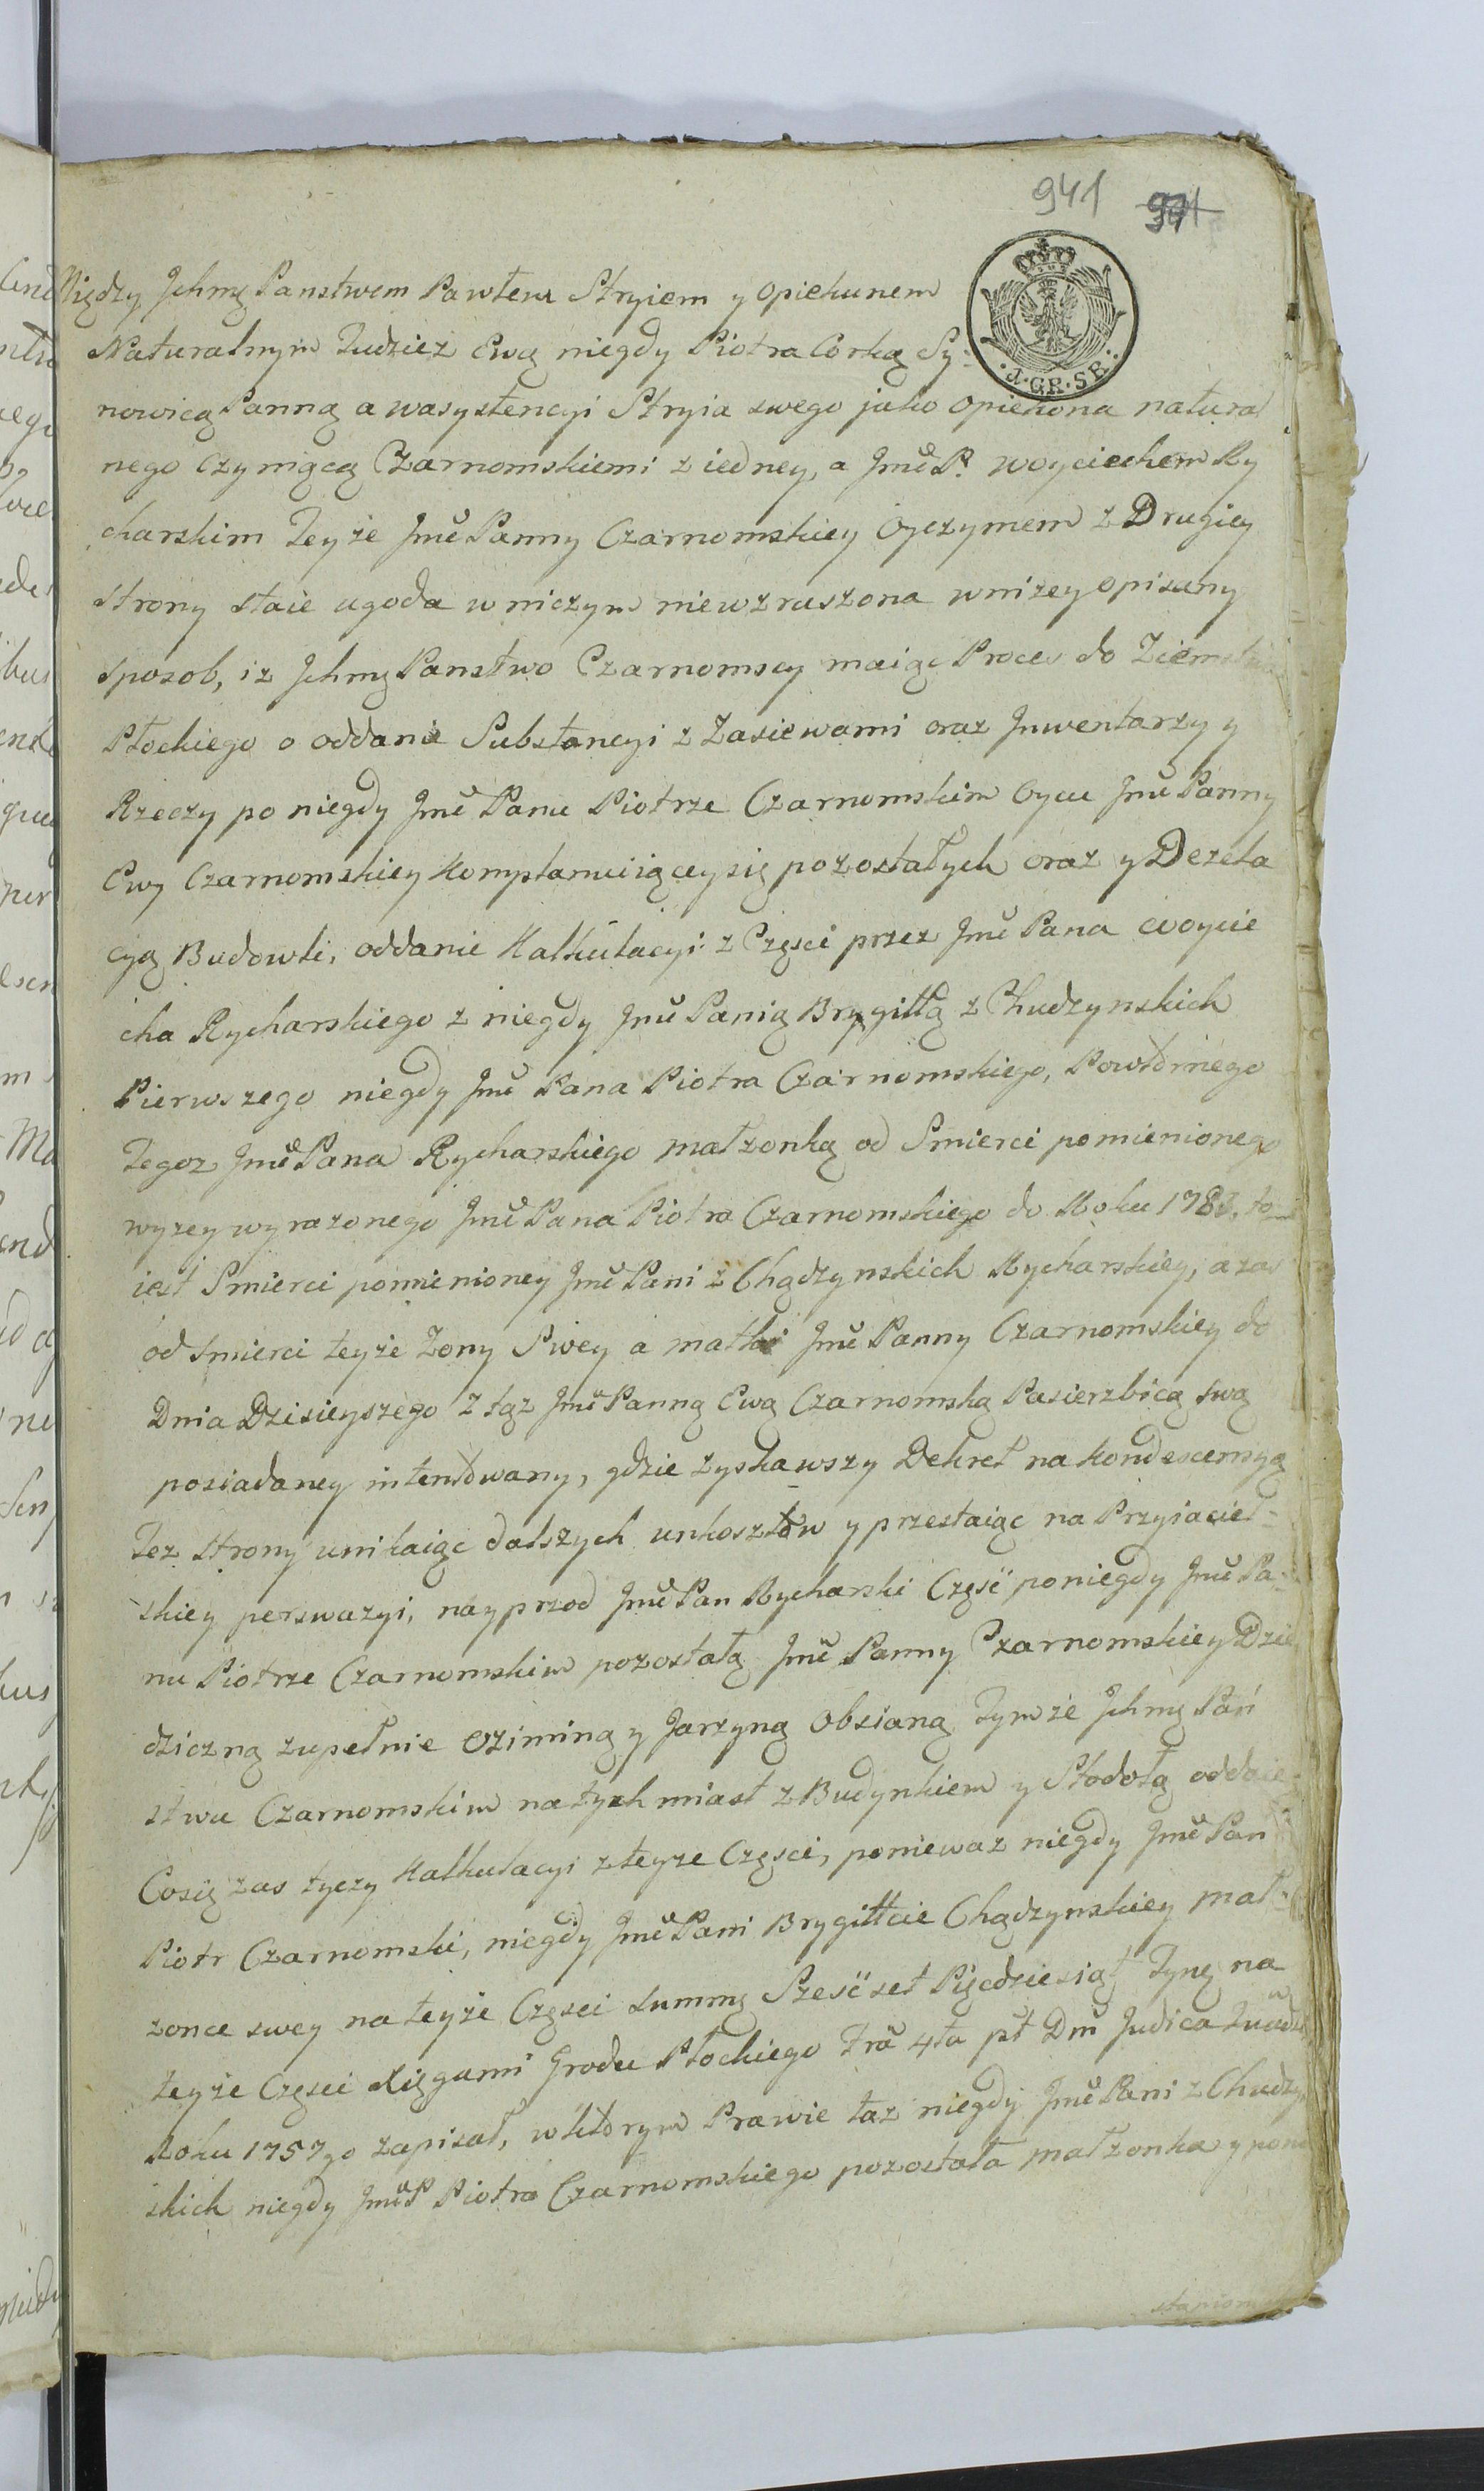 941 941
Między Jchmę Panstwem Pawłem Stryiem y Opiekunem
Naturalnym Tudziez Ewą niegdy Piotra Corką Sy-
nowicą Panną a wasystencyi Stryia swego jako Opiekona natural
nego Czyniącą Czarnomskiemi z iedney, a JmćP. woyciechem Ry
charskim Teyże Jmć Panny Czarnomskiey Oyczymem z Drugiey
strony staie ugoda wniczym niewzruszona wnizey opisany
sposob, iz Jchmę Panstwo Czarnomscy maiąc Proces do Ziemstwa
Płockiego o oddanie Substancyi z Zasiewami oraz Jnwentarzy y
Rzeczy po niegdy Jmć Panu Piotrze Czarnomskim Oycu Jmć Panny
Ewy Czarnomskiey Komplanuiiącey się pozostałych oraz y Dezela
cyą Budowli, oddanie Kalkulacyi z Częsci przez Jmć Pana Woycie
cha Rycharskiego z niegdy Jmć Panią Brygittą z Chudzynskich
Pierwszego niegdy Jmć Pana Piotra Czarnomskiego, Powtornego
Tegoz Jmć Pana Rycharskiego małzonką od Smierci pomienionego
wyzey wyrazonego Jmć Pana Piotra Czarnomskiego do Roku 1783. to
iest Smierci pomienioney Jmć Pani z Chądzynskich Rycharskiey, a zas
od smierci teyże Zony Swey a matki Jmć Panny Czarnomskiey do
Dnia Dzisieyszego z tąz Jmć Panną Ewą Czarnomską Pasierzbicą swą
posiadaney intentowany, gdzie zyskawszy Dekret na Kondescensyą
Tez strony unikaiąc dalszych unkosztow y przestaiąc na Przyiaciel-
skiey perswazyi, nayprzod Jmć Pan Rycharski Częsć poniegdy Jmć Pa-
nu Piotrze Czarnomskim pozostałą Jmć Panny Czarnomskiey Dzie
dziczną zupełnie Oziminą y Jarzyną Obsianą Tymże Jchmę Pań
stwu Czarnomskim natychmiast z Budynkiem y Stodołą oddaie
Cosię zas tyczy Kalkulacyi zteyze Częsci, poniewaz niegdy Jmć Pan
Piotr Czarnomski, niegdy Jmć Pani Brygittcie Chądzynskiey mał-
zonce swey na teyże Częsci summę Szesćset Pięcdziesiąt Tynf na
teyże Częsci Xięgami Grodu Płockiego fra 4ta pt Dm Judica
Roku 1757go zapisał, wktorym Prawie taz niegdy Jmć Pani z Chudzyn
skich niegdy JmćP Piotra Czarnomskiego pozostała małzonka y
J.GR.SR.